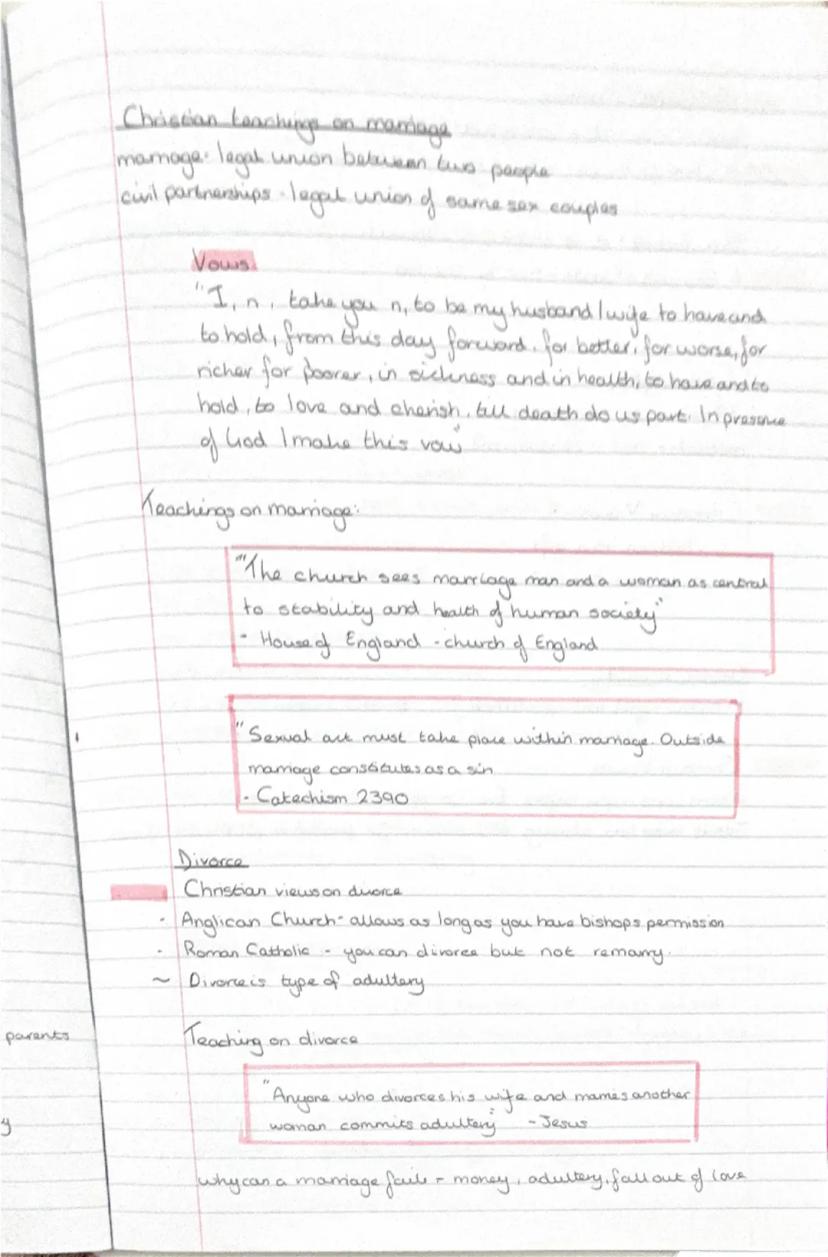 Christian teachings on marriage
marriage: legal union between two people
civil partnerships - legal union of same sex couples
Vows
"I, n, take you n, to be my husband/wife to have and
to hold, from this day forward, for better, for worse, for
richer for poorer, in sickness and in health, to have and to
hold, to love and cherish, till death do us part. In presence
of God I make this vow"
Teachings on marriage:
"The church sees marriage man and a woman as central
to stability and health of human society"
- House of England - church of England
"Sexual act must take place within marriage. Outside
marriage constitutes as a sin
- Catechism 2390
Divorce
Christian views on divorce
- Anglican Church - allows as long as you have bishops permission
- Roman Catholic - you can divorce but not remarry.
~ Divorce is type of adultery
parents
Teaching on divorce
"Anyone who divorces his wife and marries another
woman commits adultery" - Jesus
y
why can a marriage fail - money, adultery, fall out of love